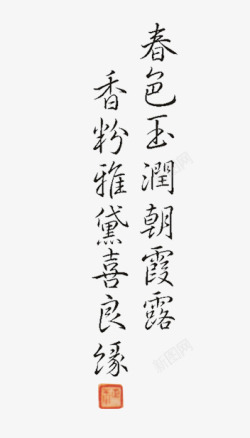 春色玉潤朝霞露
香粉雅黛喜良緣